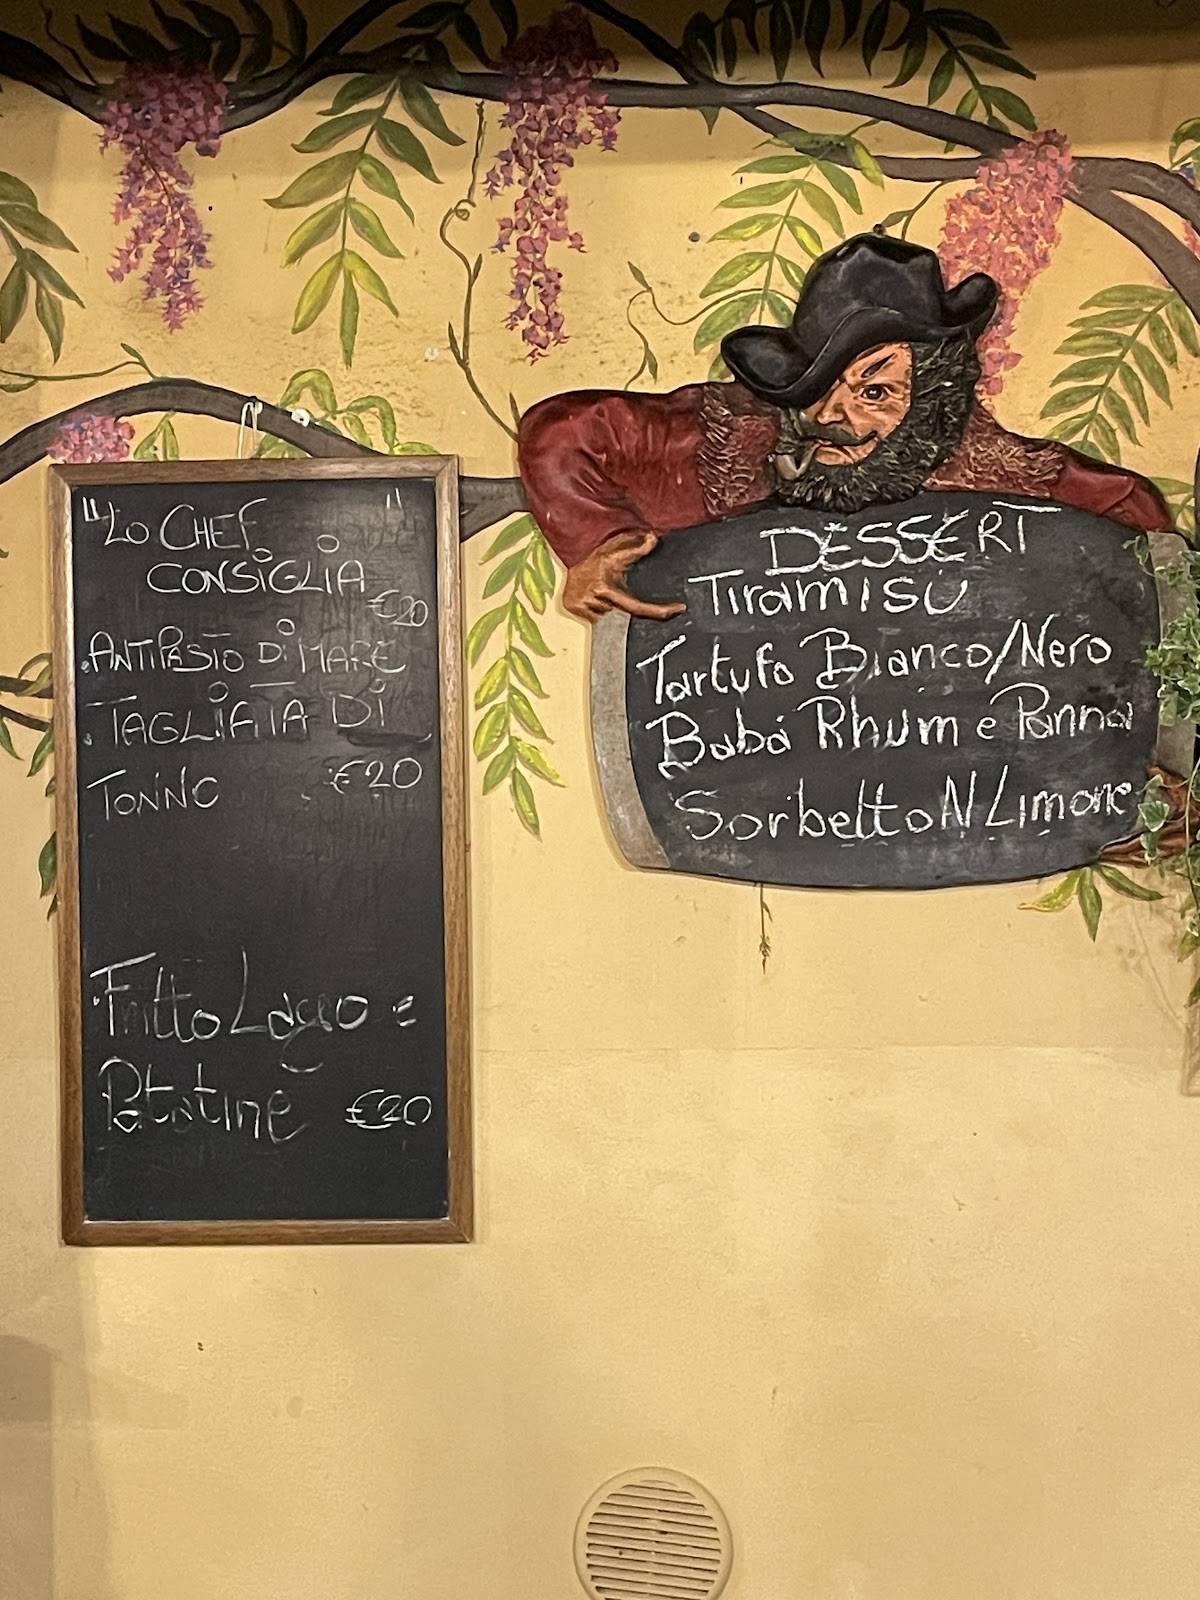 "LO CHEF "
CONSIGLIA
€20
.ANTIPASTO DI MARE
. TAGLIATA DI
TONNO €20
.Fritto Lago e
Patatine €20
DESSERT
Tiramisù
Tartufo Bianco/Nero
Babà Rhum e Panna
Sorbetto Al Limone